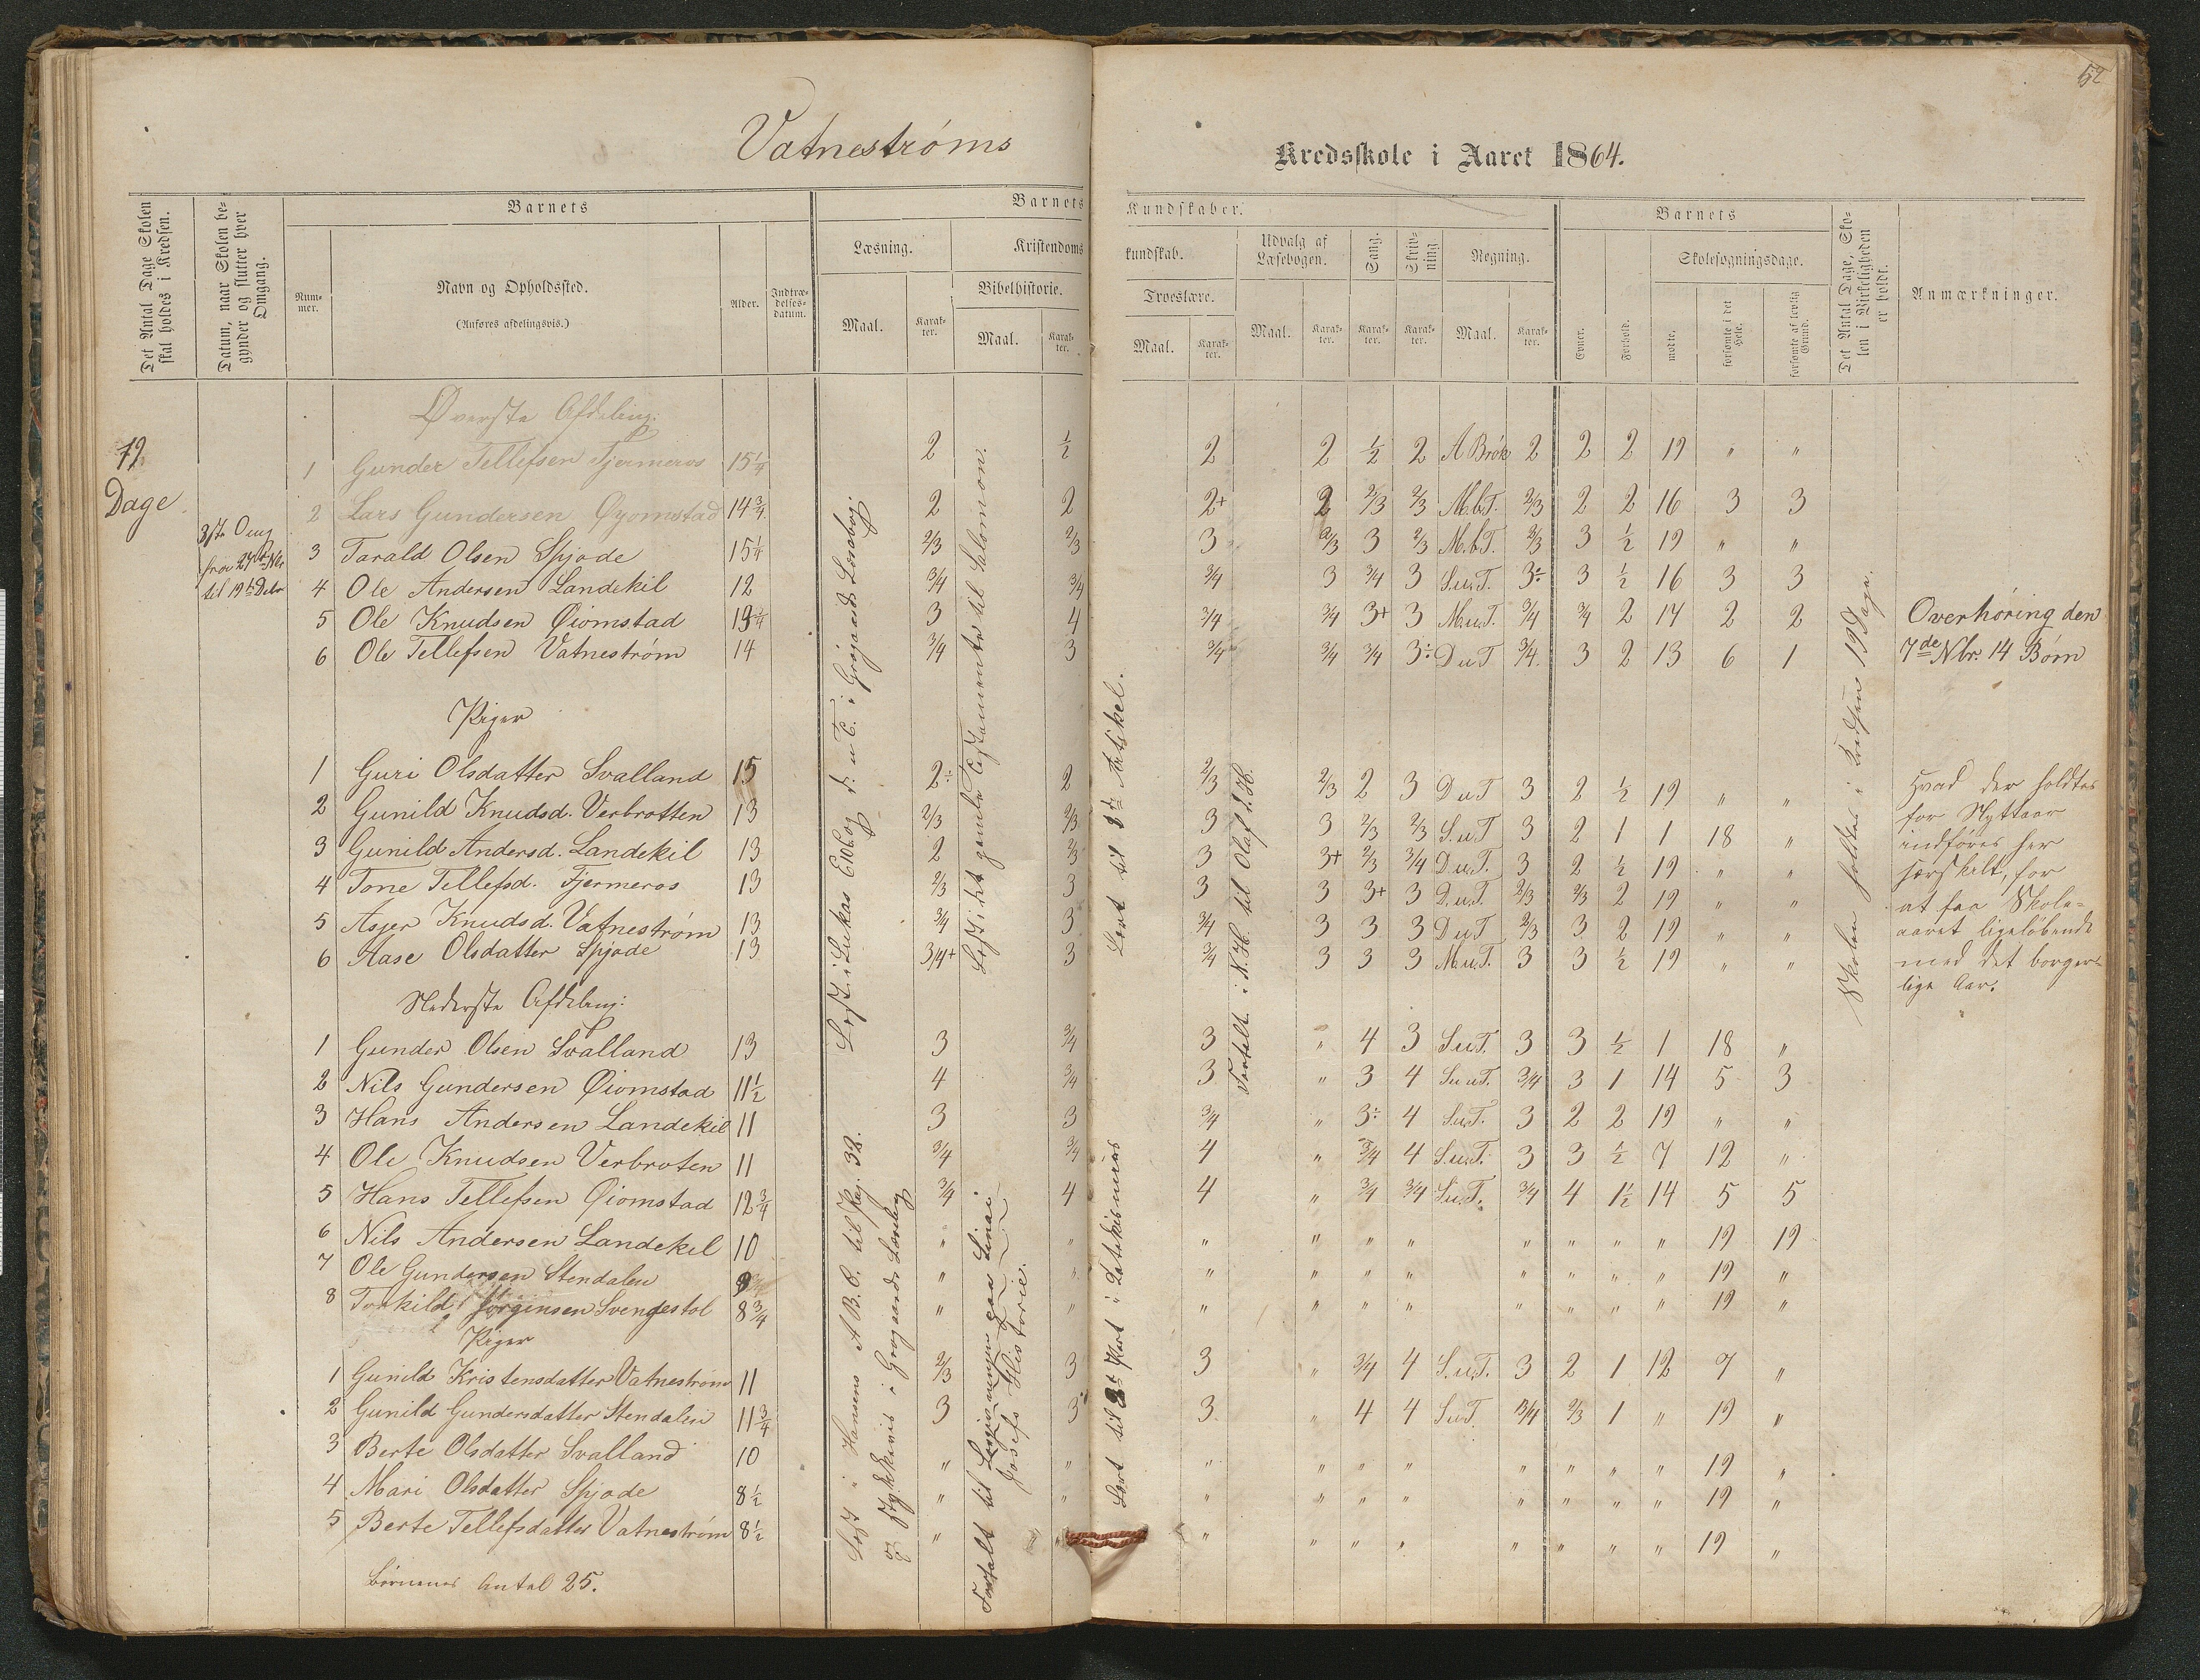 52
Vatnestrøms Kredsskole i Aaret 1864.
Det Antal Dage Skolen skal holdes i Kredsen.
Datum, naar Skolen begynder og slutter hver Omgang.
Barnets
Nummer.
Navn og Opholdssted.
(Anføres afdelingsvis.)
Alder.
Indtrædelsesdatum.
Barnets Kundskaber.
Læsning.
Maal.
Karakter.
Kristendomskundskab.
Bibelhistorie.
Maal.
Karakter.
Troeslære.
Maal.
Karakter.
Udvalg af Læsebogen.
Maal.
Karakter.
Sang.
Karakter.
Skrivning
Karakter.
Regning.
Maal.
Karakter.
Barnets
Evner.
Forhold.
Skolesøgningsdage.
mødte.
forsømte i det Hele.
forsømte af lovlig Grund.
Det Antal Dage, Skolen i Virkeligheden er holdt.
Anmærkninger.
12
Dage
3die Omg
fra 27de Nbr
til 19de Debr
Øverste Afdeling:
1 Gunder Tellefsen Fjermeros 15 1/4 2 1/2 2 2 1/2 2 A Brøk 2 2 2 19 " "
2 Lars Gundersen Øyomstad 14 3/4 2 2 2+ 2 2/3 2/3 M.b.T. 2/3 2 2 16 3 3
3 Tarald Olsen Spjode 15 1/4 2/3 2/3 3 2/3 3 2/3 M.b.T. 2/3 3 1/2 19 " "
4 Ole Andersen Landekil 12 3/4 3/4 3/4 3 3/4 3 S.u.T. 3÷ 3 1/2 16 3 3
5 Ole Knudsen Øiomstad 3 4 3/4 3/4 3+ 3 M.u.T. 3/4 3/4 2 17 2 2
6 Ole Tellefsen Vatnestrøm 14 3/4 3 3/4 3/4 3/4 3÷ D u T 3/4 3 2 13 6 1
Overhøring den
7de Nbr. 14 Børn
Piger
1 Guri Olsdatter Svalland 15 2÷ 2 2/3 2/3 2 3 D u T 3 2 1/2 19 " "
2 Gunild Knudsd. Verbrotten 13 2/3 2/3 3 3 2/3 2/3 S.u.T 3 2 1 1 18 "
3 Gunild Andersd. Landekil 13 2 2/3 3 3+ 2/3 3/4 D.u.T. 3 2 1/2 19 " "
4 Tone Tellefsd. Fjermeros 13 2/3 3 3 3 3+ 3 D.u.T. 2/3 2/3 2 19 " "
5 Asjer Knudsd. Vatnestrøm 13 3/4 3 3/4 3 3 3 D u T 2/3 3 2 19 " "
6 Aase Olsdatter Spjode 13 3/4+ 3 3/4 3 3 3 M.u.T. 3 3 1/2 19 " "
Hvad der holdtes
for Nyttaar
indføres her
særskilt, for
at faa Skole-
aaret ligeløbende
med det borger-
lige Aar.
Nederste Afdeling:
1 Gunder Olsen Svalland 13 3 3/4 3 " 4 3 S.u.T. 3 3 1/2 1 18 "
2 Nils Gundersen Øiomstad 11 1/2 4 3/4 3 " 3 4 S.u.T. 3/4 3 1 14 5 3
3 Hans Andersen Landekil 11 3 3 3/4 " 3÷ 4 S.u.T. 3 2 2 19 " "
4 Ole Knudsen Verbroten 11 3/4 3/4 4 " 3/4 4 S.u.T. 3 3 1/2 7 12 "
5 Hans Tellefsen Øiomstad 12 3/4 3/4 4 4 " 3/4 3/4 S.u.T. 3/4 4 1 1/2 14 5 5
6 Nils Andersen Landekil 10 " " " " " " " " " " 19 19
7 Ole Gundersen Stendalen 9 " " " " " " " " " " 19 "
8 Torkild Jørginsen Svengestol 8 3/4 " " " " " " " " " " 19 "
Piger
1 Gunild Kristensdatter Vatnestrøm 11 2/3 3 3 " 3/4 4 S.u.T. 3 2 1 12 7 "
2 Gunild Gundersdatter Stendalen 11 3/4 3 3 3 " 4 4 S.u.T. 3/4 2/3 1 " 19 "
3 Berte Olsdatter Svalland 10 " " " " " " " " " " 19 "
4 Mari Olsdatter Spjode 8 1/2 " " " " " " " " " " 19 "
5 Berte Tellefsdatter Vatnestrøm 8 1/2 " " " " " " " " " " 19 "
Børnenes Antal 25.
Læst i Lukas Ev. og d. u. T. i Grøgaards Læsebog
Læst i det gamle Testamente til Salomon.
Lært til 3de Artikel.
Fortalt i N. H. til Olaf d. H.
Skolen holdtes i Kredsen 19 Dage.
Læst i Hansens A B. C. til Pag. 32.
og stykkevis i Grøgaards Læsebog
Fortalt til Lovgivningen paa Sinai
Josefs Historie.
Lært til Part i Katekismus